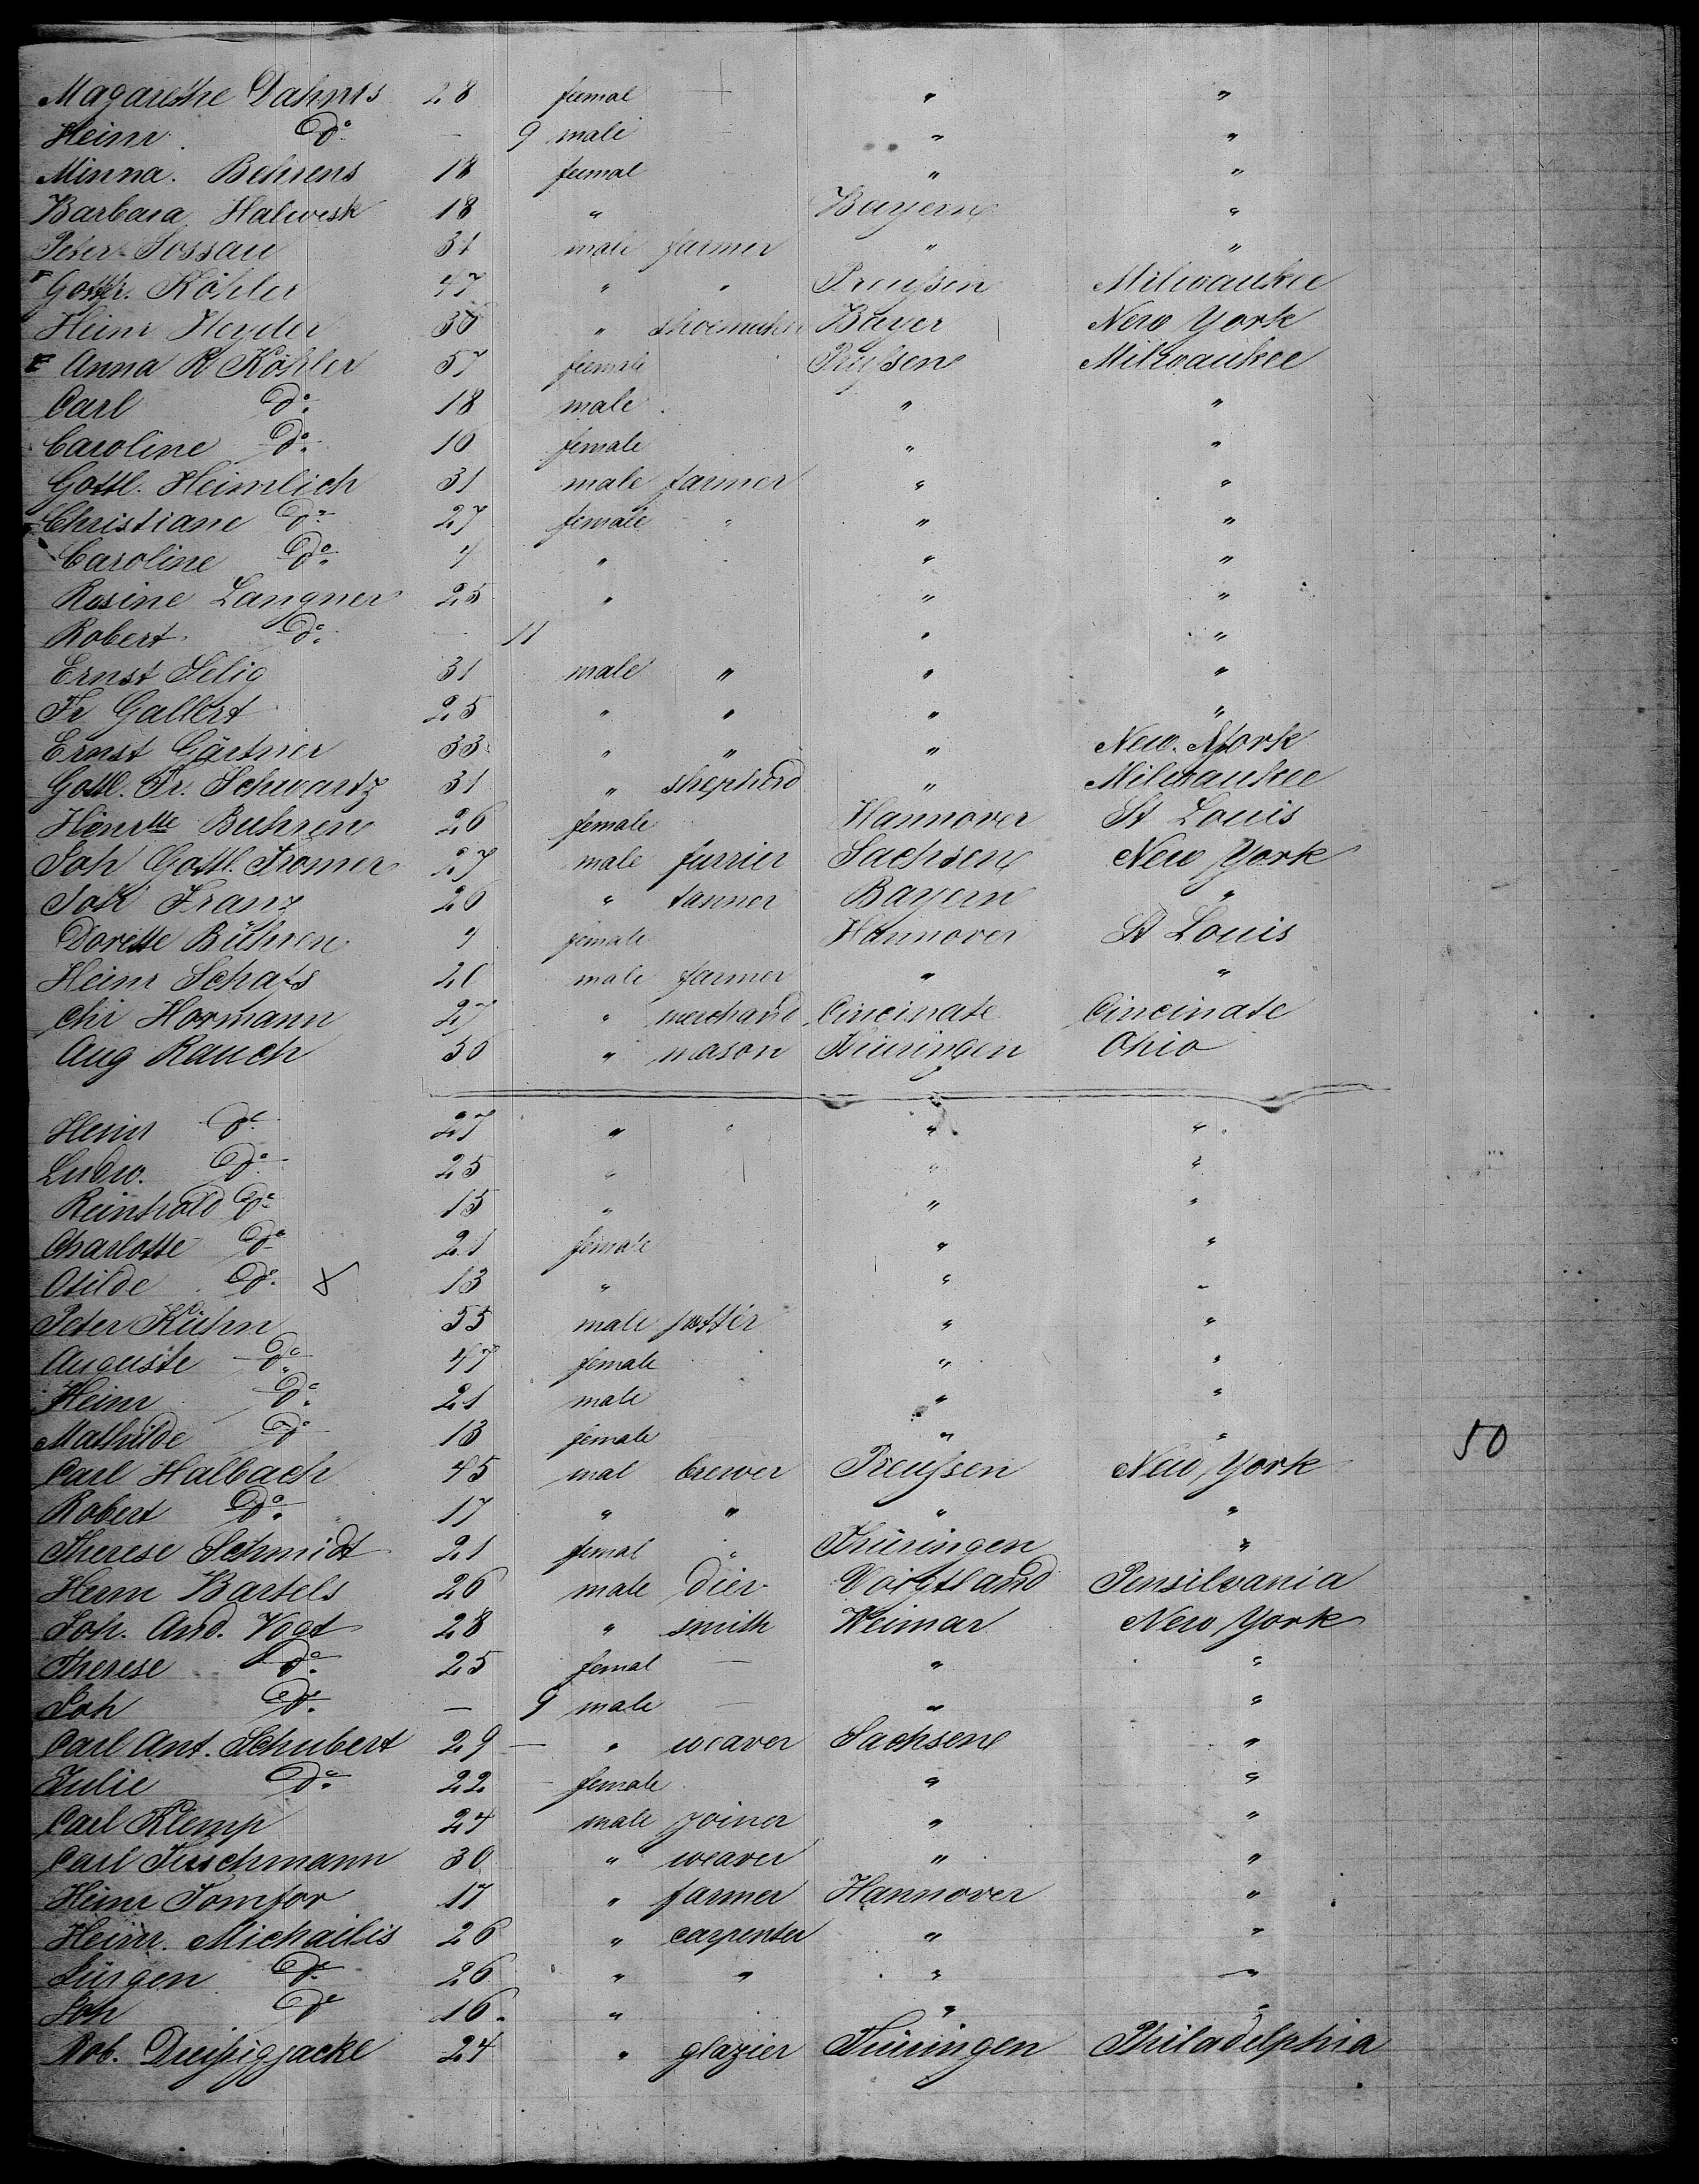 Magarethe Dahms 28 feemal " "
Heinr. Do — 9 male " "
Minna. Behrens 18 feemal " "
Barbara Halwesk 18 " Bayern "
Peter Sossau 31 male farmer " "
Gottfr. Köhler 47 " " Preußen Milwaukee
Heinr Heyder 30 " shoemaker Bayer New York
Anna R Köhler 57 feemale Prußen Milwaukee
Carl Do 18 male " "
Caroline Do 16 female " "
Gottl. Heimlich 31 male farmer " "
Christiane Do 27 female " " "
Caroline Do 4 " " "
Rosine Langner 25 " " "
Robert Do — 11 " "
Ernst Selig 31 male " " "
Fr Gallert 25 " " " "
Ernst Gärtner 33 " " " New York
Gottl. Fr. Schwartz 31 " shepherd " Milwaukee
Henrtte Buhren 26 female Hannover St Louis
Joh Gottl. Tromer 27 male furrier Sachsen New York
Joh Franz 26 " tanner Bayern "
Dorette Bühren 4 female Hannover St Louis
Heinr Schats 26 male farmer " "
Chr Hormann 27 " merchand Cincinate Cincinate
Aug Rauch 30 " mason Thüringen Ohio
Heinr Do 27 " " " "
Ludw. Do 25 " " "
Reinhold Do 15 " " "
Charlotte Do 21 female " "
Otilde Do 13 " " "
Peter Kühn 55 male potter " "
Auguste Do 47 female " "
Heinr Do 21 male " "
Mathilde Do 13 female " "
50
Carl Halbach 45 mal brewer Preußen New York
Robert Do 17 " " " "
Therese Schmidt 21 femal " Thüringen "
Herm Bartels 26 male dier Voigtland Pensilvania
Joh. And. Vogt 28 " smith Weimar New York
Therese Do 25 femal — " "
Joh Do — 9 male — " "
Carl Ant. Schubert 29 — " weaver Sachsen "
Julie Do 22 — female " "
Carl Klemp 24 male joiner " "
Carl Tuschmann 30 " weaver " "
Heinr Tomfor 17 " farmer Hannover "
Heinr. Michaelis 26 " carpenter " "
Jürgen Do 26 " " " "
Joh Do 16. " " "
Rob. Dreißigjacke 24 " glazier Thüringen Philadelphia